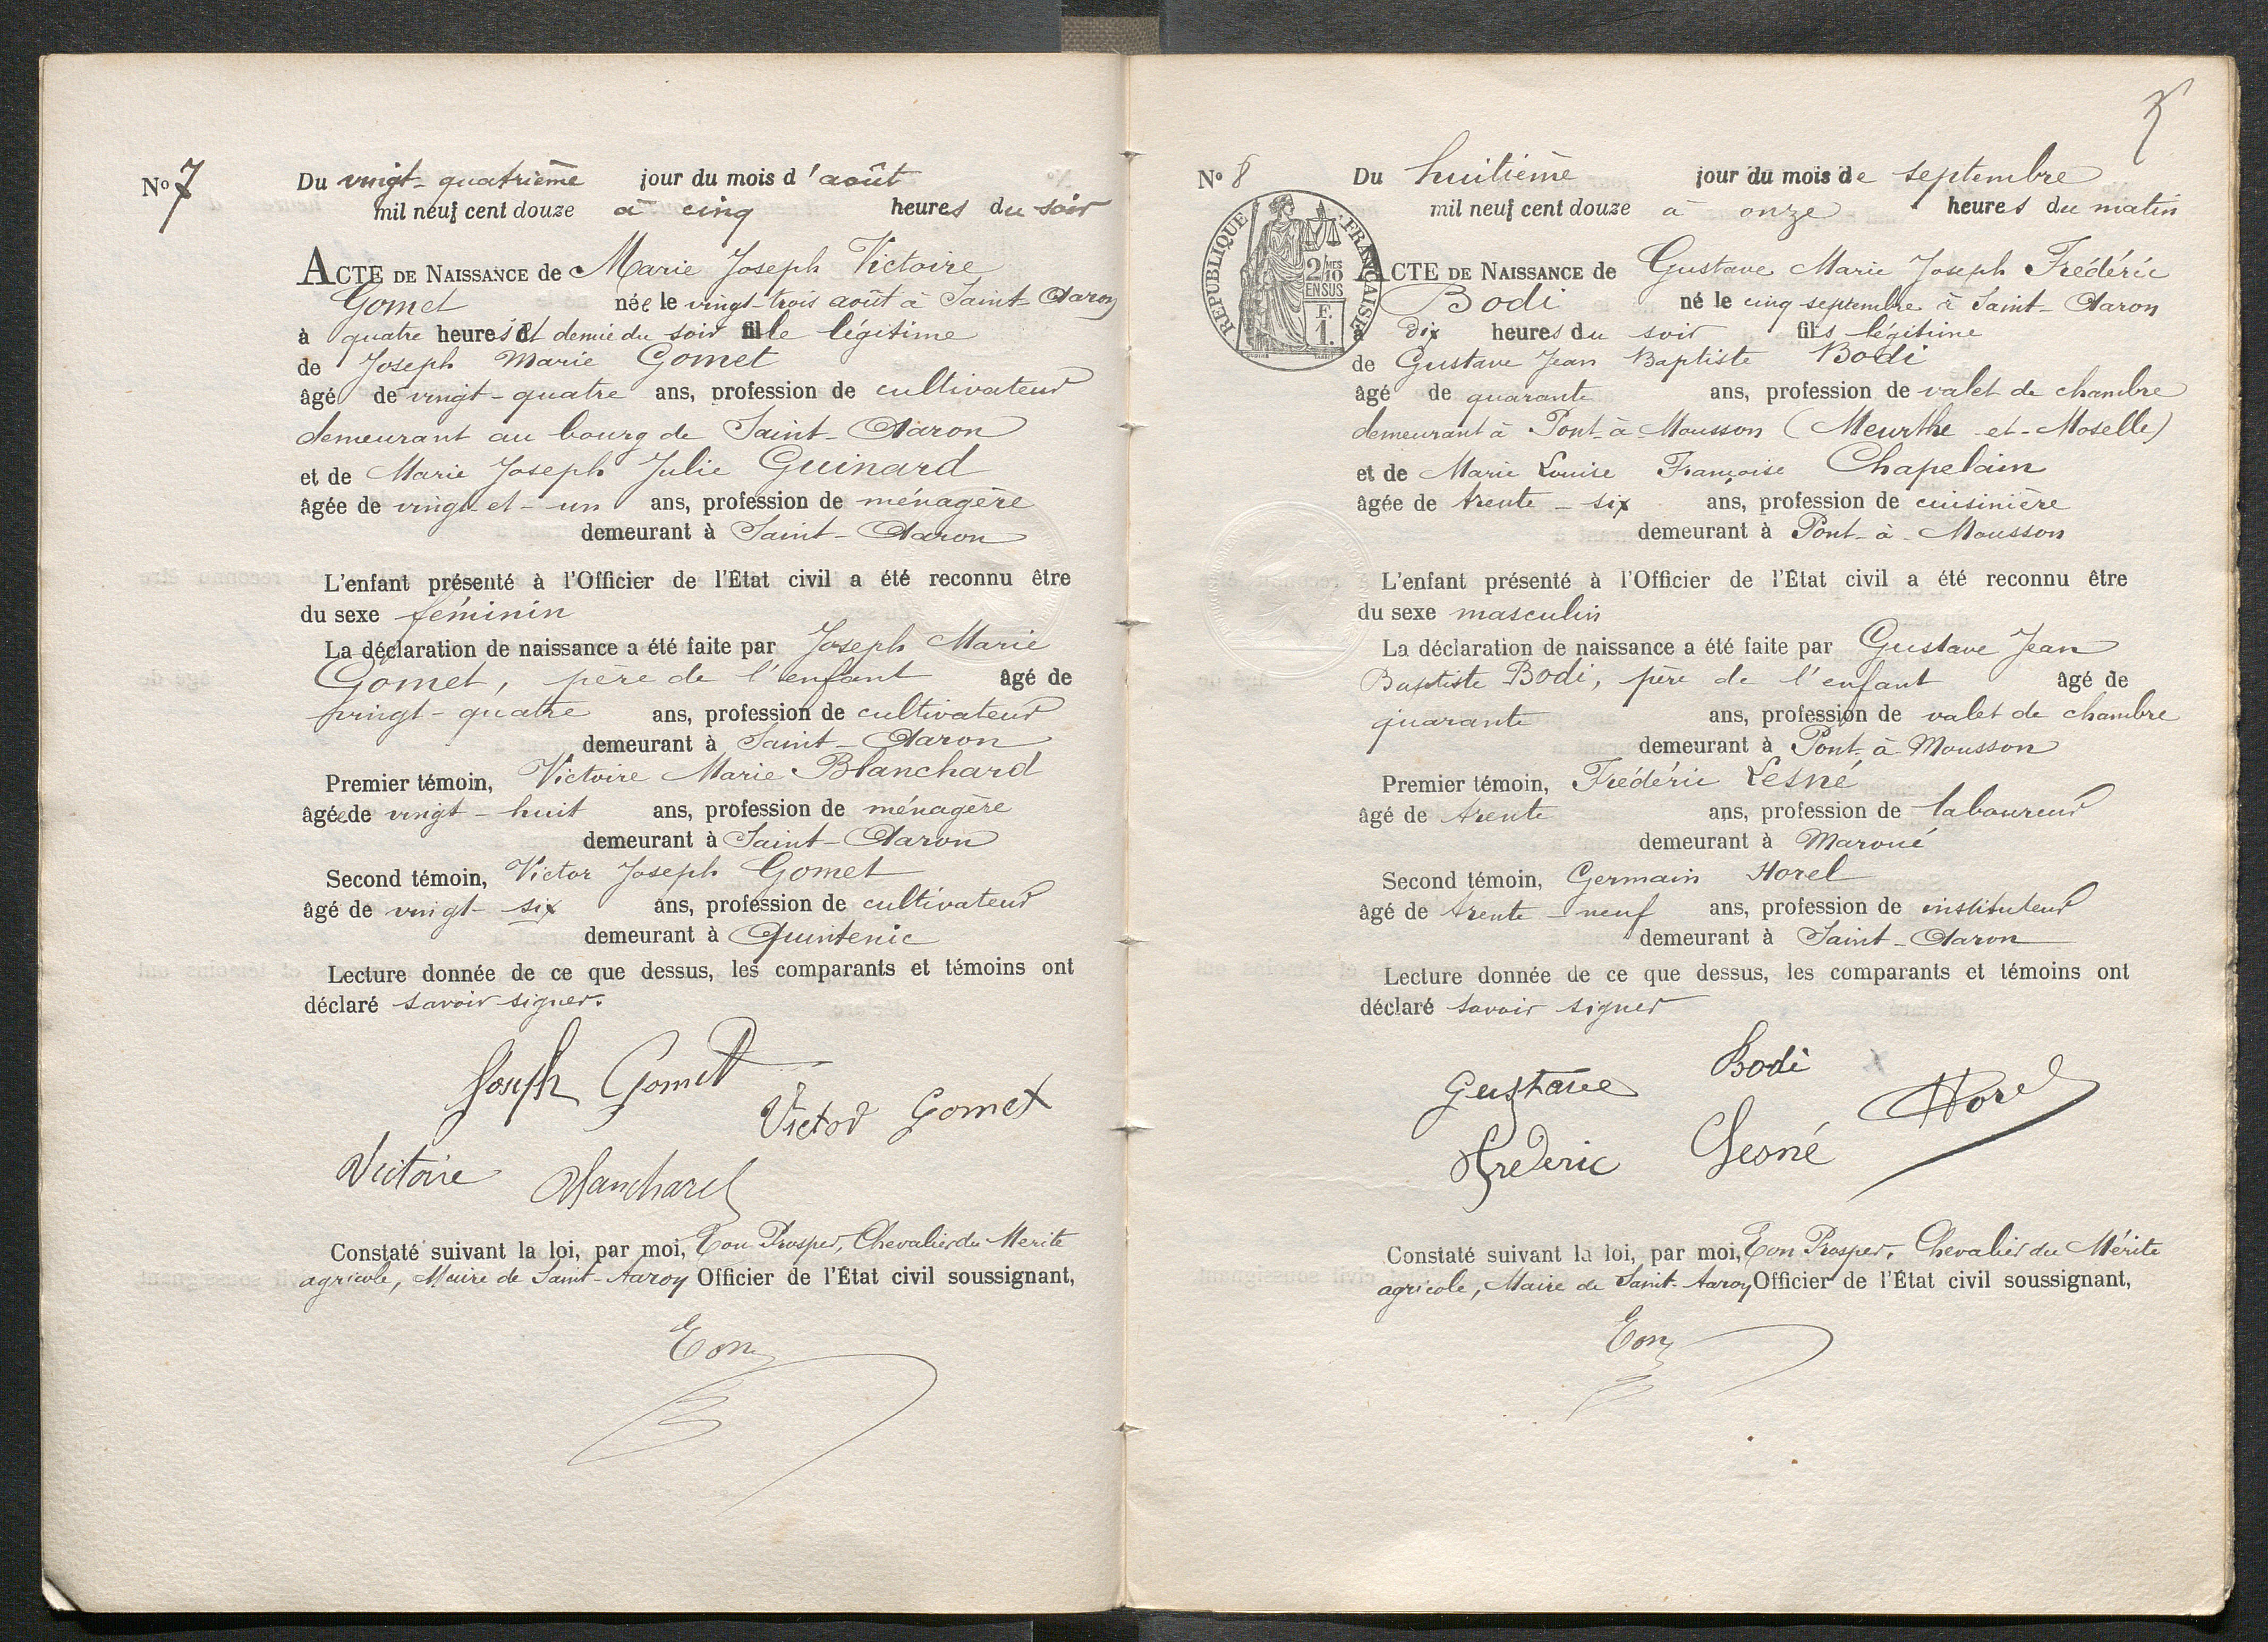 No 7
Du vingt-quatrième jour du mois d'août
mil neuf cent douze à cinq heures du soir
ACTE DE NAISSANCE de Marie Joseph Victoire
Gomet née le vingt-trois août à Saint-Aaron
à quatre heures et demie du soir fille légitime
de Joseph Marie Gomet
âgé de vingt-quatre ans, profession de cultivateur
demeurant au bourg de Saint-Aaron
et de Marie Joseph Julie Guinard
âgée de vingt-et-un ans, profession de ménagère
demeurant à Saint-Aaron
L'enfant présenté à l'Officier de l'État civil a été reconnu être
du sexe féminin
La déclaration de naissance a été faite par Joseph Marie
Gomet, père de l'enfant âgé de
vingt-quatre ans, profession de cultivateur
demeurant à Saint-Aaron
Premier témoin, Victoire Marie Blanchard
âgée de vingt-huit ans, profession de ménagère
demeurant à Saint-Aaron
Second témoin, Victor Joseph Gomet
âgé de vingt-six ans, profession de cultivateur
demeurant à Quintenic
Lecture donnée de ce que dessus, les comparants et témoins ont
déclaré savoir signer.
Joseph Gomet
Victor Gomet
Victoire Blanchard
Constaté suivant la loi, par moi, Eon Prosper, Chevalier du Mérite
agricole, Maire de Saint-Aaron Officier de l'État civil soussignant,
Eon
5
No 8
RÉPUBLIQUE FRANÇAISE
2/10 MES
EN SUS
F.
1.
Du huitième jour du mois de septembre
mil neuf cent douze à onze heures du matin
ACTE DE NAISSANCE de Gustave Marie Joseph Frédéric
Bodi né le cinq septembre à Saint-Aaron
à dix heures du soir fils légitime
de Gustave Jean Baptiste Bodi
âgé de quarante ans, profession de valet de chambre
demeurant à Pont-à-Mousson (Meurthe-et-Moselle)
et de Marie Louise Françoise Chapelain
âgée de trente-six ans, profession de cuisinière
demeurant à Pont-à-Mousson
L'enfant présenté à l'Officier de l'État civil a été reconnu être
du sexe masculin
La déclaration de naissance a été faite par Gustave Jean
Baptiste Bodi, père de l'enfant âgé de
quarante ans, profession de valet de chambre
demeurant à Pont-à Mousson
Premier témoin, Frédéric Lesné
âgé de trente ans, profession de laboureur
demeurant à Maroué
Second témoin, Germain Horel
âgé de trente-neuf ans, profession de instituteur
demeurant à Saint-Aaron
Lecture donnée de ce que dessus, les comparants et témoins ont
déclaré savoir signer
Gustave Bodi
Horel
Frederic Lesné
Constaté suivant la loi, par moi, Eon Prosper, Chevalier du Mérite
agricole, Maire de Saint-Aaron Officier de l'État civil soussignant,
Eon